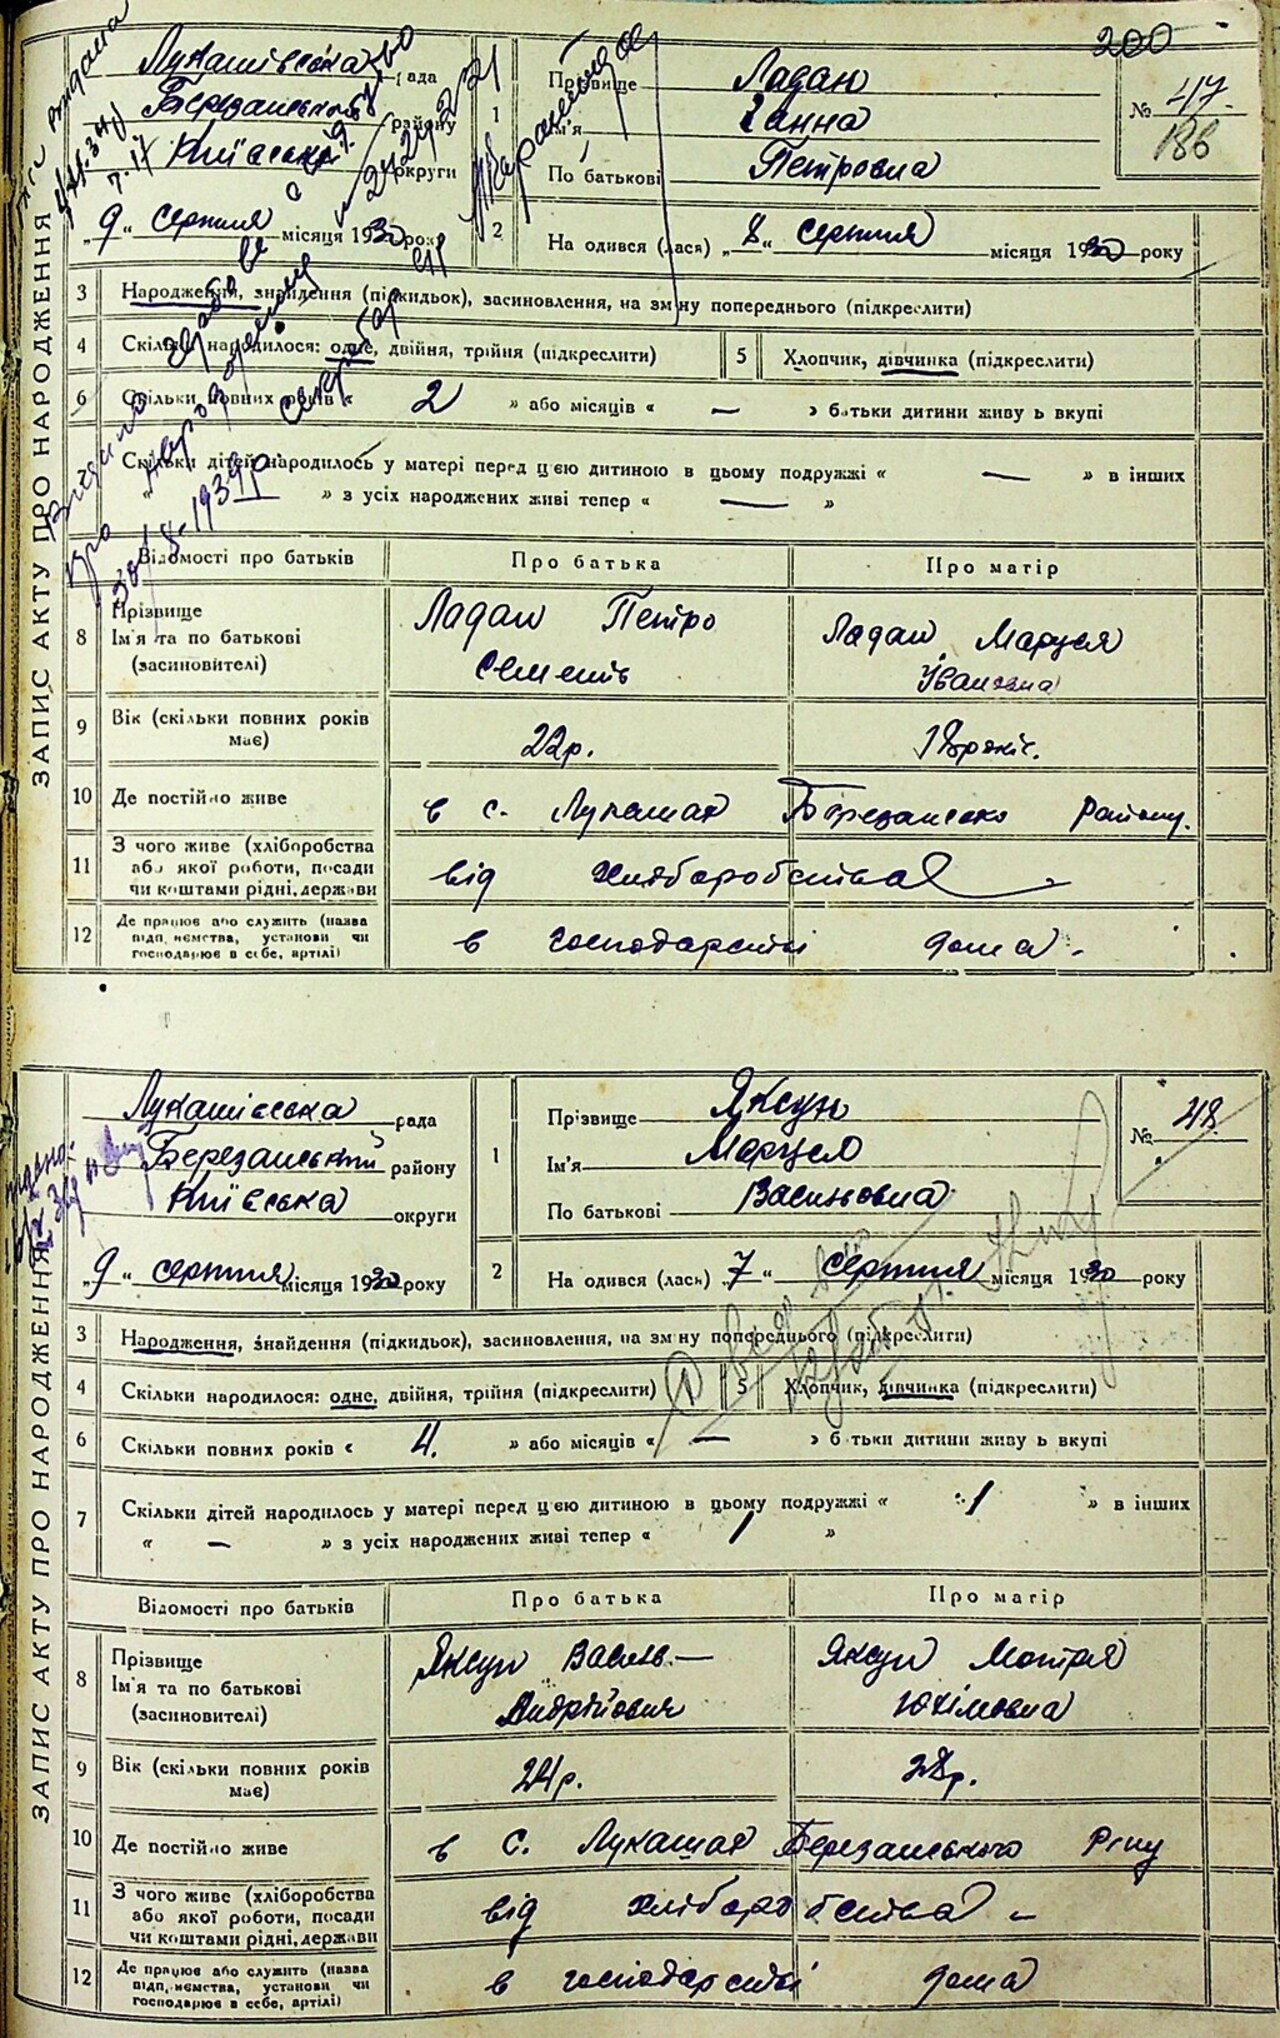 200
ЗАПИС АКТУ ПРО НАРОДЖЕННЯ
Лукашівська рада
Березанський району
Київська округи
„9“ серпня місяця 1930 року
1
Прізвище Ладан
Ім'я Ганна
По батькові Петровна
№ 47
186
2 На одився (лася) „8“ серпня місяця 1930 року
3 Народження, знайдення (підкидьок), засиновлення, на зміну попереднього (підкреслити)
4 Скільки народилося: одне, двійня, трійня (підкреслити)
5 Хлопчик, дівчинка (підкреслити)
6 Скільки повних років « 2 » або місяців « — » батьки дитини живу ь вкупі
Скільки дітей народилось у матері перед цією дитиною в цьому подружжі « — » в інших
» з усіх народжених живі тепер « — »
30/X-1939р.
Відомості про батьків Про батька Про матір
8 Прізвище
Ім'я та по батькові
(засиновителі)
Ладан Петро
Семенів
Ладан Маруся
Івановна
9 Вік (скільки повних років має)
22р. 18 рокіс.
10 Де постійно живе
в с. Лукашах Березансько Району.
11 З чого живе (хліборобства
або якої роботи, посади
чи коштами рідні, держави
від хліборобства
12 Де працює або служить (назва
підп. ємства, установи чи
господарює в себе, артілі)
в господарстві дома.
ЗАПИС АКТУ ПРО НАРОДЖЕННЯ
Лукашівська рада
Березанський району
Київська округи
„9“ серпня місяця 1930 року
1
Прізвище Яксун
Ім'я Маруся
По батькові Васильовна
№ 48
2 На одився (лась) „7“ серпня місяця 1930 року
3 Народження, знайдення (підкидьок), засиновлення, на зміну попереднього (підкреслити)
4 Скільки народилося: одне, двійня, трійня (підкреслити)
5 Хлопчик, дівчинка (підкреслити)
6 Скільки повних років « 4. » або місяців « — » б тьки дитини живу ь вкупі
7 Скільки дітей народилось у матері перед цією дитиною в цьому подружжі « 1 » в інших
« — » з усіх народжених живі тепер « 1 »
Відомості про батьків Про батька Про матір
8 Прізвище
Ім'я та по батькові
(засиновителі)
Яксун Василь —
Андрійович
Яксун Мотря
Юхімовна
9 Вік (скільки повних років має)
24р. 28р.
10 Де постійно живе
в С. Лукашах Березанського Р-ну
11 З чого живе (хліборобства
або якої роботи, посади
чи коштами рідні, держави
від хліборобства —
12 Де працює або служить (назва
підп. ємства, установи чи
господарює в себе, артілі)
в господарстві дома